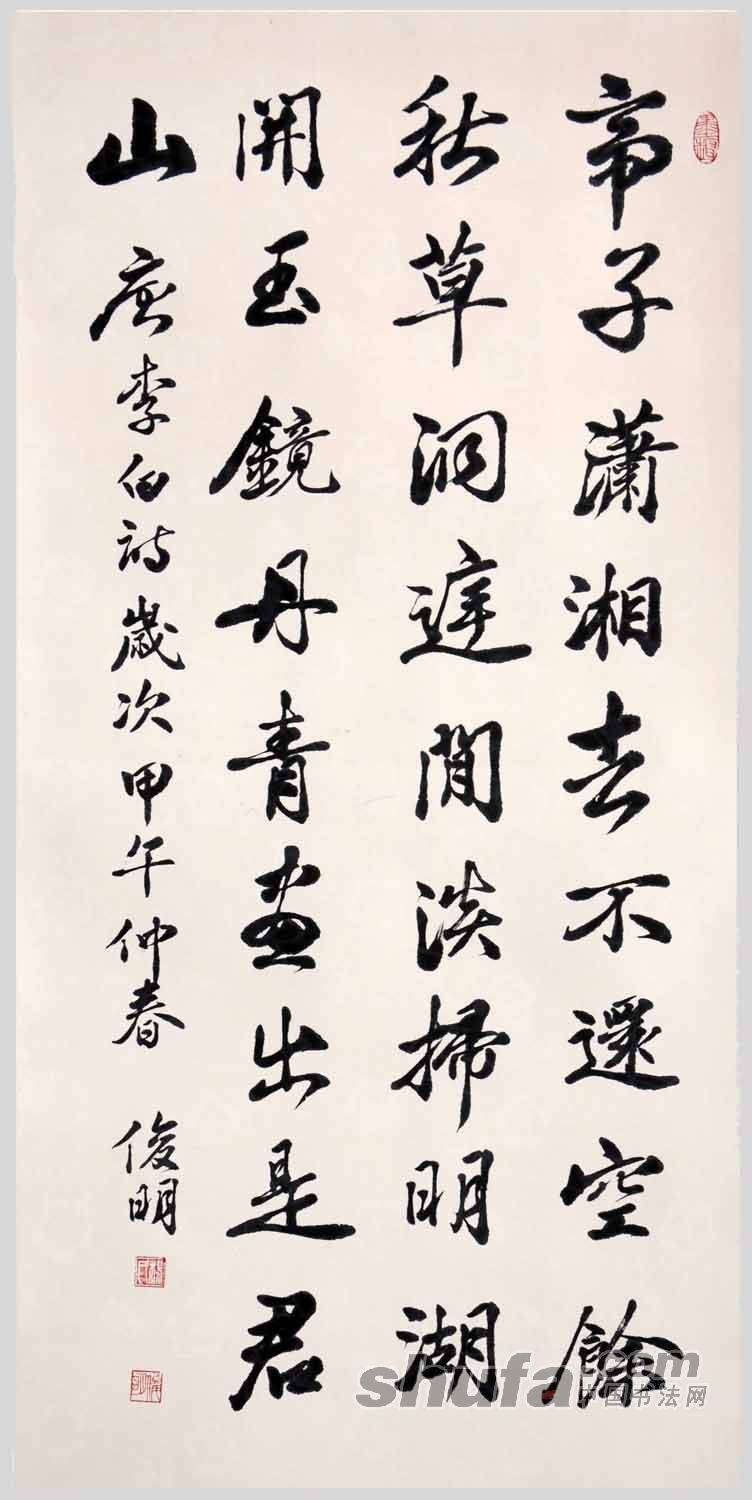 帝子瀟湘去不還空餘
秋草洞庭間淡掃明湖
開玉鏡丹青畫出是君
山 唐李白詩歲次甲午仲春 俊明
shufa.com
中国书法网